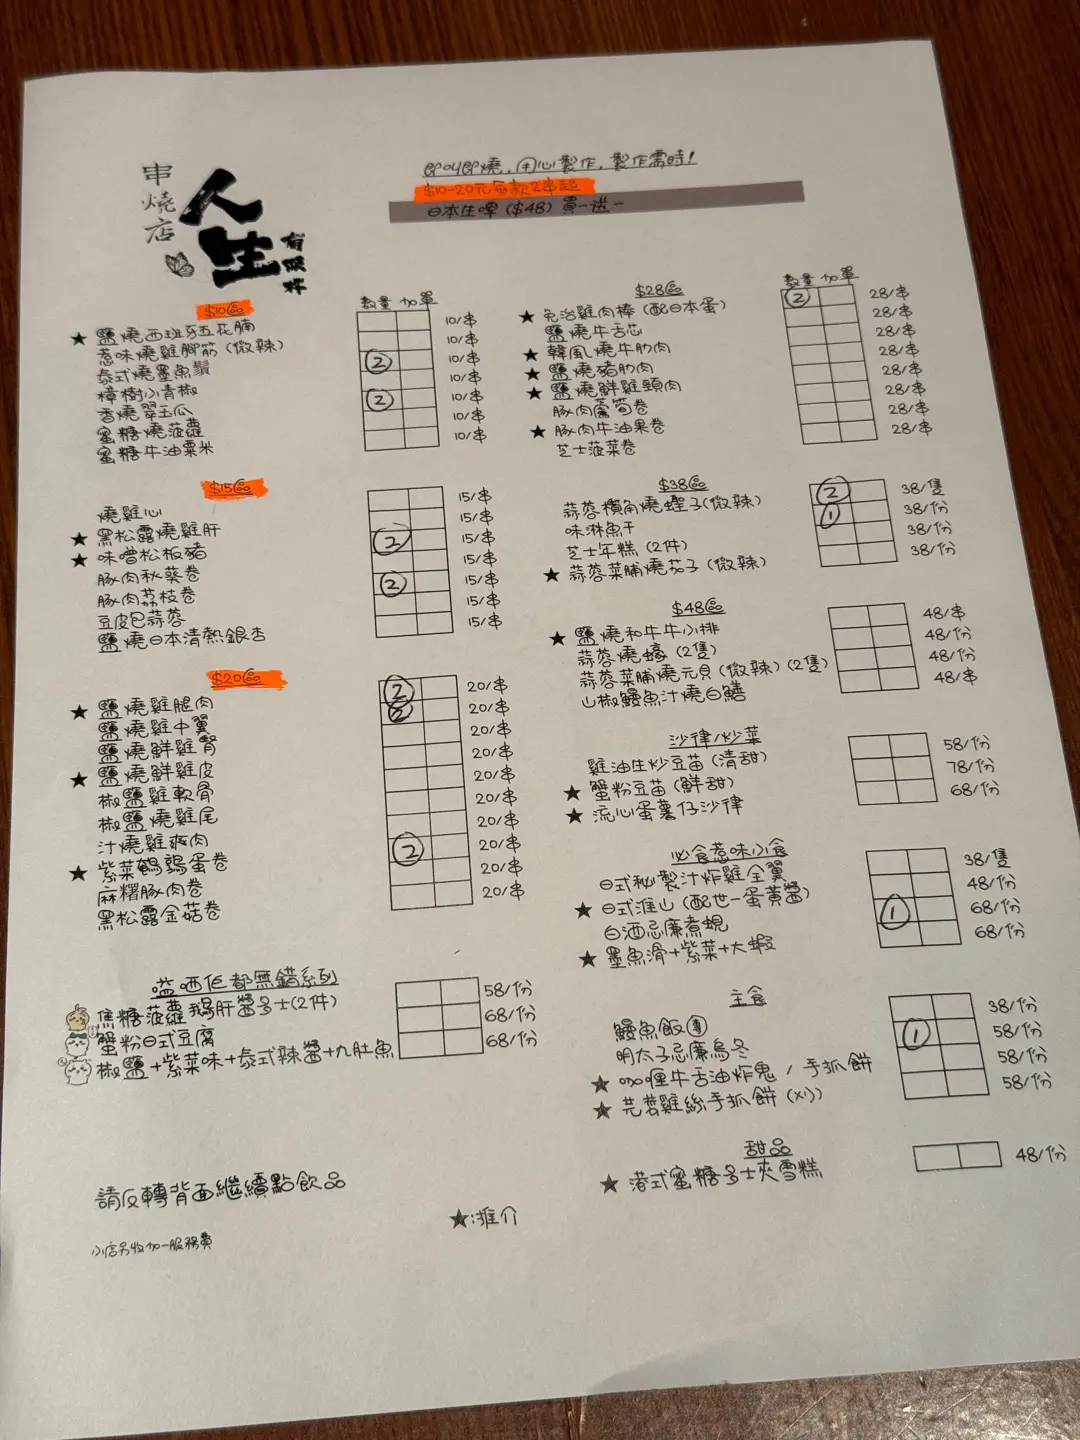 串燒店
人生
有限杯
即叫即燒，用心製作，製作需時！
$10-20元每款2串起
日本生啤（$48）買一送一
$10區
數量 加單
★ 鹽燒西班牙五花腩 10/串
惹味燒雞腳筋（微辣） 10/串
泰式燒墨魚鬚 ② 10/串
樟樹小青椒 10/串
香燒翠玉瓜 ② 10/串
蜜糖燒菠蘿 10/串
蜜糖牛油粟米 10/串
$15區
燒雞心 15/串
★ 黑松露燒雞肝 15/串
★ 味噌松板豬 ② 15/串
豚肉秋葵卷 15/串
豚肉荔枝卷 ② 15/串
豆皮包蒜蓉 15/串
鹽燒日本清熱銀杏 15/串
$20區
★ 鹽燒雞腿肉 ② 20/串
鹽燒雞中翼 ② 20/串
鹽燒鮮雞腎 20/串
★ 鹽燒鮮雞皮 20/串
椒鹽雞軟骨 20/串
椒鹽燒雞尾 20/串
汁燒雞爽肉 20/串
★ 紫菜鵪鶉蛋卷 ② 20/串
麻糬豚肉卷 20/串
黑松露金菇卷 20/串
嗌哂佢都無錯系列
焦糖菠蘿鵝肝醬多士(2件) 58/份
蟹粉日式豆腐 68/份
椒鹽+紫菜味+泰式辣醬+九肚魚 68/份
請反轉背面繼續點飲品
小店另收加一服務費
★:推介
$28區
數量 加單
★ 免治雞肉棒（配日本蛋） ② 28/串
鹽燒牛舌芯 28/串
★ 韓風燒牛肋肉 28/串
★ 鹽燒豬肋肉 28/串
★ 鹽燒鮮雞頸肉 28/串
豚肉蘆筍卷 28/串
★ 豚肉牛油果卷 28/串
芝士菠菜卷 28/串
$38區
蒜蓉欖角燒蟶子(微辣) ② 38/隻
味淋魚干 ① 38/份
芝士年糕（2件） 38/份
★ 蒜蓉菜脯燒茄子（微辣） 38/份
$48區
★ 鹽燒和牛牛小排 48/串
蒜蓉燒蠔（2隻） 48/份
蒜蓉菜脯燒元貝（微辣）（2隻） 48/份
山椒鰻魚汁燒白鱔 48/串
沙律/炒菜
雞油生炒豆苗（清甜） 58/份
★ 蟹粉豆苗（鮮甜） 78/份
★ 流心蛋薯仔沙律 68/份
必食惹味小食
日式秘製汁炸雞全翼 38/隻
★ 日式淮山（配世一蛋黃醬） 48/份
白酒忌廉煮蜆 ① 68/份
★ 墨魚滑+紫菜+大蝦 68/份
主食
鰻魚飯 38/份
明太子忌廉烏冬 ① 58/份
★ 咖喱牛舌油炸鬼 / 手抓餅 58/份
★ 芫荽雞絲手抓餅（凍） 58/份
甜品
★ 港式蜜糖多士夾雪糕 48/份